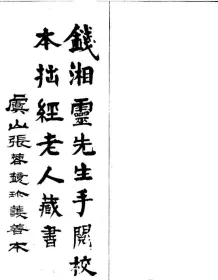 錢湘靈先生手閱校
本拙經老人藏書
虞山張蓉鏡珍藏善本